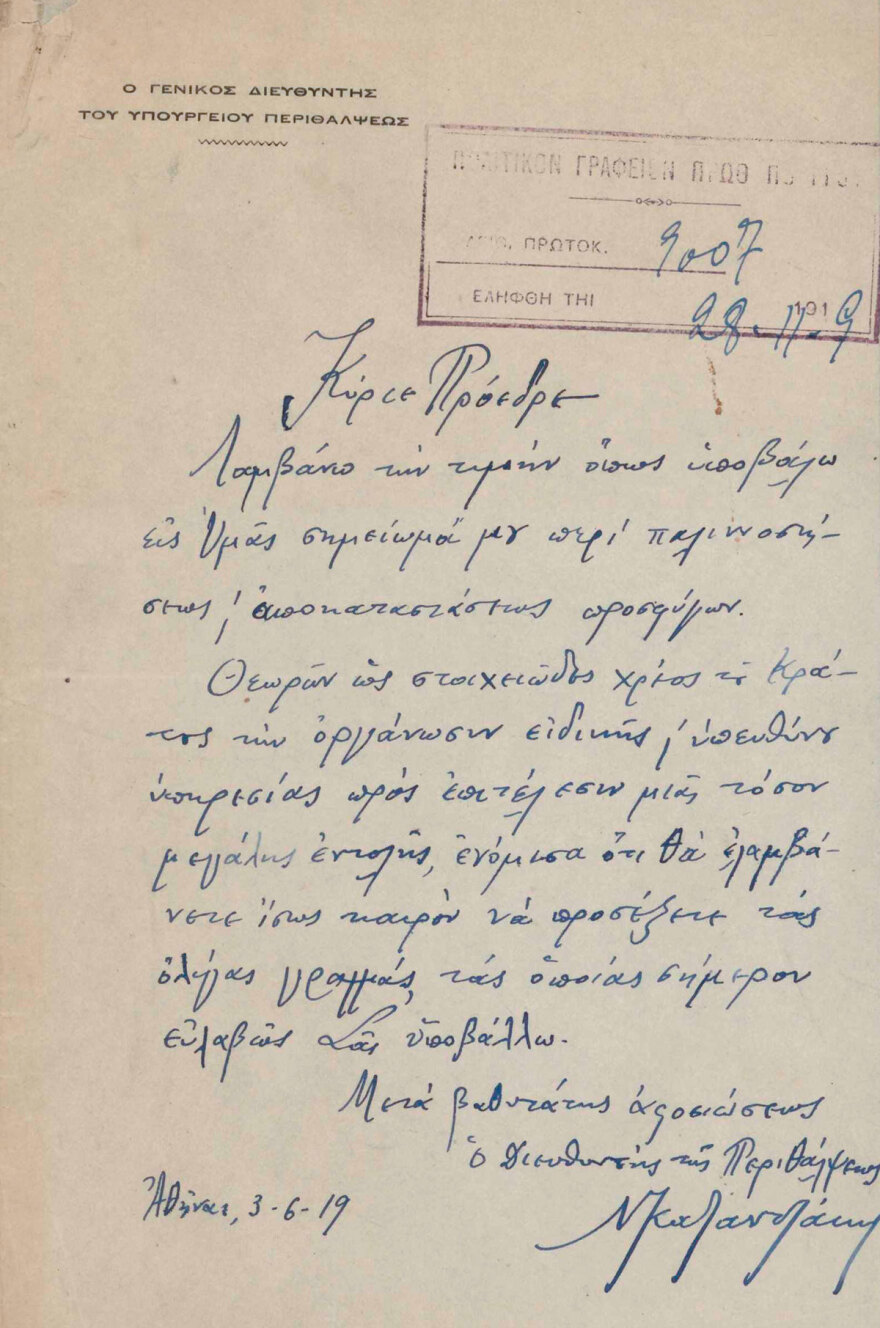 Ο ΓΕΝΙΚΟΣ ΔΙΕΥΘΥΝΤΗΣ
ΤΟΥ ΥΠΟΥΡΓΕΙΟΥ ΠΕΡΙΘΑΛΨΕΩΣ
ΠΟΛΙΤΙΚΟΝ ΓΡΑΦΕΙΟΝ
ΠΡΩΤΟΚ. 9007
ΕΛΗΦΘΗ ΤΗΙ 28-11-9 191
Κύριε Πρόεδρε
Λαμβάνω τὴν τιμὴν ὅπως ὑποβάλω
εἰς Ὑμᾶς σημείωμά μου περὶ παλιννοστή-
σεως & ἀποκαταστάσεως προσφύγων.
Θεωρῶν ὡς στοιχειῶδες χρέος τοῦ Κρά-
τους τὴν ὀργάνωσιν εἰδικῆς & ὑπευθύνου
ὑπηρεσίας πρὸς ἐπιτέλεσιν μιᾶς τόσον
μεγάλης ἐντολῆς, ἐνόμισα ὅτι θὰ ἐλαμβά-
νετε ἴσως καιρὸν νὰ προσέξετε τὰς
ὀλίγας γραμμάς, τὰς ὁποίας σήμερον
εὐλαβῶς Σᾶς ὑποβάλλω.
Μετὰ βαθυτάτης ἀφοσιώσεως
ὁ Διευθυντὴς τῆς Περιθάλψεως
Ἀθῆναι, 3-6-19
Ν Καζαντζάκης